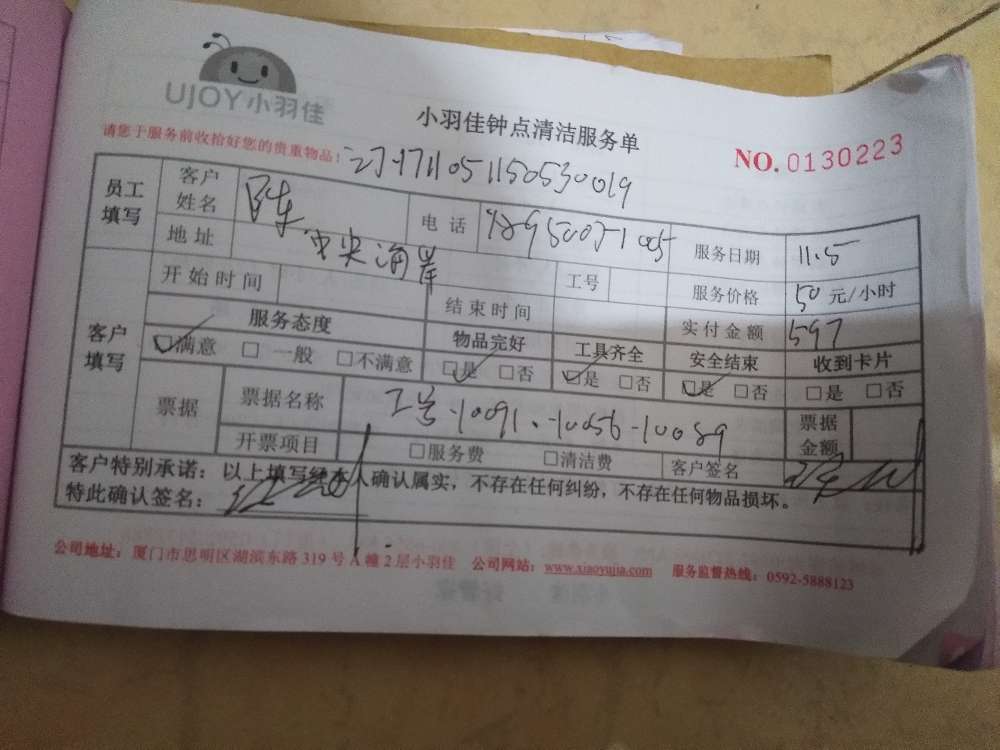 UJOY小羽佳
小羽佳钟点清洁服务单
请您于服务前收拾好您的贵重物品!
NO.0130223
员工填写 客户姓名 陈 电话 服务日期 11.5
地址 中央海岸 工号 服务价格 50元/小时
开始时间 结束时间 实付金额 597
客户填写 服务态度 物品完好 工具齐全 安全结束 收到卡片
☑满意 □一般 □不满意 ☑是 □否 ☑是 □否 ☑是 □否 □是 □否
票据 票据名称 工号-10091.-10056-10089 票据金额
开票项目 □服务费 □清洁费 客户签名
客户特别承诺:以上填写经本人确认属实,不存在任何纠纷,不存在任何物品损坏。
特此确认签名:
公司地址:厦门市思明区湖滨东路 319 号 A 幢 2 层小羽佳 公司网站:www.xiaoyujia.com 服务监督热线:0592-5888123